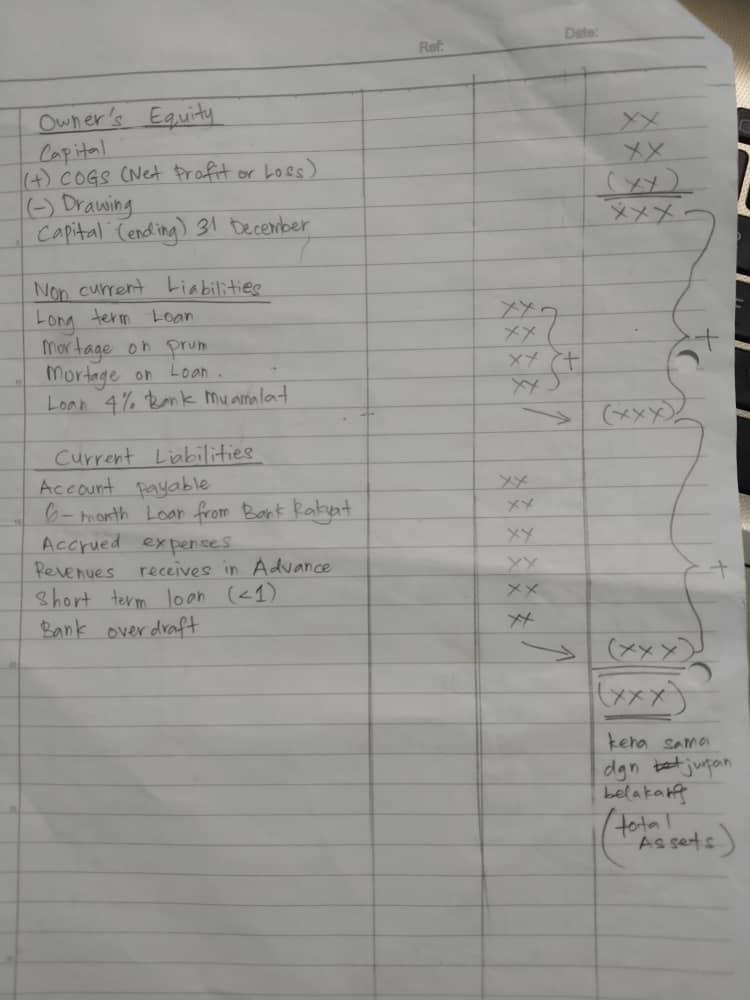 Ref:
Date:
Owner's Equity
XX
Capital
XX
(+) COGS (Net Profit or Loss)
(XX)
(-) Drawing
XXX
Capital (ending) 31 December
Non current Liabilities
Long term Loan XX
Mortage on prum XX
+
Mortage on Loan. XX +
Loan 4% Bank Muamalat XX
→ (XXX)
Current Liabilities
Account payable XX
6-month Loan from Bank Rakyat XX
Accrued expenses XY
Revenues receives in Advance XX +
Short term loan (<1) XX
Bank overdraft XX
→ (XXX)
(XXX)
kena sama
dgn jumpan
belakang
(total
Assets)